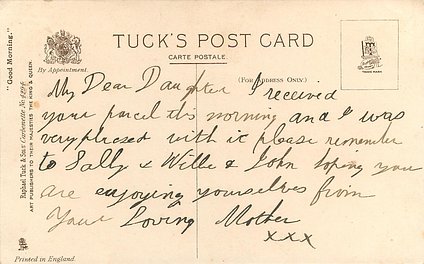 "Good Morning."
Raphael Tuck & Sons' Carbonette No.
ART PUBLISHERS TO THEIR MAJESTIES THE KING & QUEEN.
By Appointment.
TUCK'S POST CARD
CARTE POSTALE.
(FOR ADDRESS ONLY.)
TRADE MARK
My Dear Daughter I received
your parcel this morning and I was
very pleased with it please remember
to Sally & Willie & John hoping you
are enjoying yourselves from
Your Loving Mother
xxx
Printed in England.